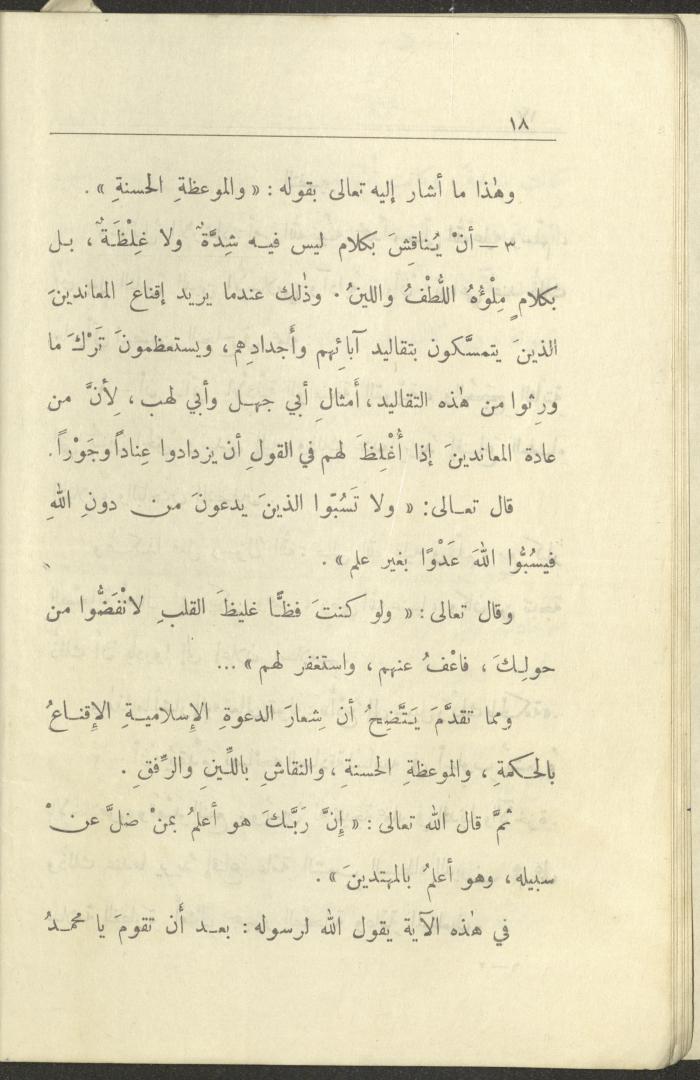 ١٨
وهٰذا ما أشار إليه تعالى بقوله : « والموعظةِ الحسنةِ » .
٣ — أنْ يُناقِشَ بكلام ليس فيه شِدَّةٌ ولا غِلْظَةٌ ، بل
بكلامٍ مِلْؤُهُ اللُّطْفُ واللينُ . وذٰلك عندما يريد إقناعَ المعاندينَ
الذينَ يتمسَّكون بتقاليد آبائِهم وأَجدادِهِم ، ويستعظمونَ تَرْكَ ما
ورِثوا من هٰذه التقاليد ، أَمثالِ أبي جهل وأبي لهب ، لِأنَّ من
عادة المعاندينَ إذا أُغْلِظَ لهم في القولِ أن يزدادوا عِناداً وجَوْراً .
قال تعالى : « ولا تَسُبّوا الذينَ يدعونَ من دونِ اللهِ
فيسُبُّوا اللهَ عَدْوًا بغير علم » .
وقال تعالى : « ولو كنتَ فظًّا غليظَ القلبِ لانْفَضُّوا من
حولِكَ ، فاعْفُ عنهم ، واستغفر لهم » ...
ومما تقدَّمَ يَتَّضِحُ أن شِعارَ الدعوةِ الإسلاميةِ الإِقناعُ
بالحكمةِ ، والموعظةِ الحسنةِ ، والنقاشِ باللِّينِ والرِّفقِ .
ثمَّ قال الله تعالى : « إِنَّ رَبَّكَ هو أعلمُ بمنْ ضلَّ عنْ
سبيله ، وهو أعلمُ بالمهتدينَ » .
في هٰذه الآية يقول الله لرسوله : بعد أَن تقومَ يا محمدُ